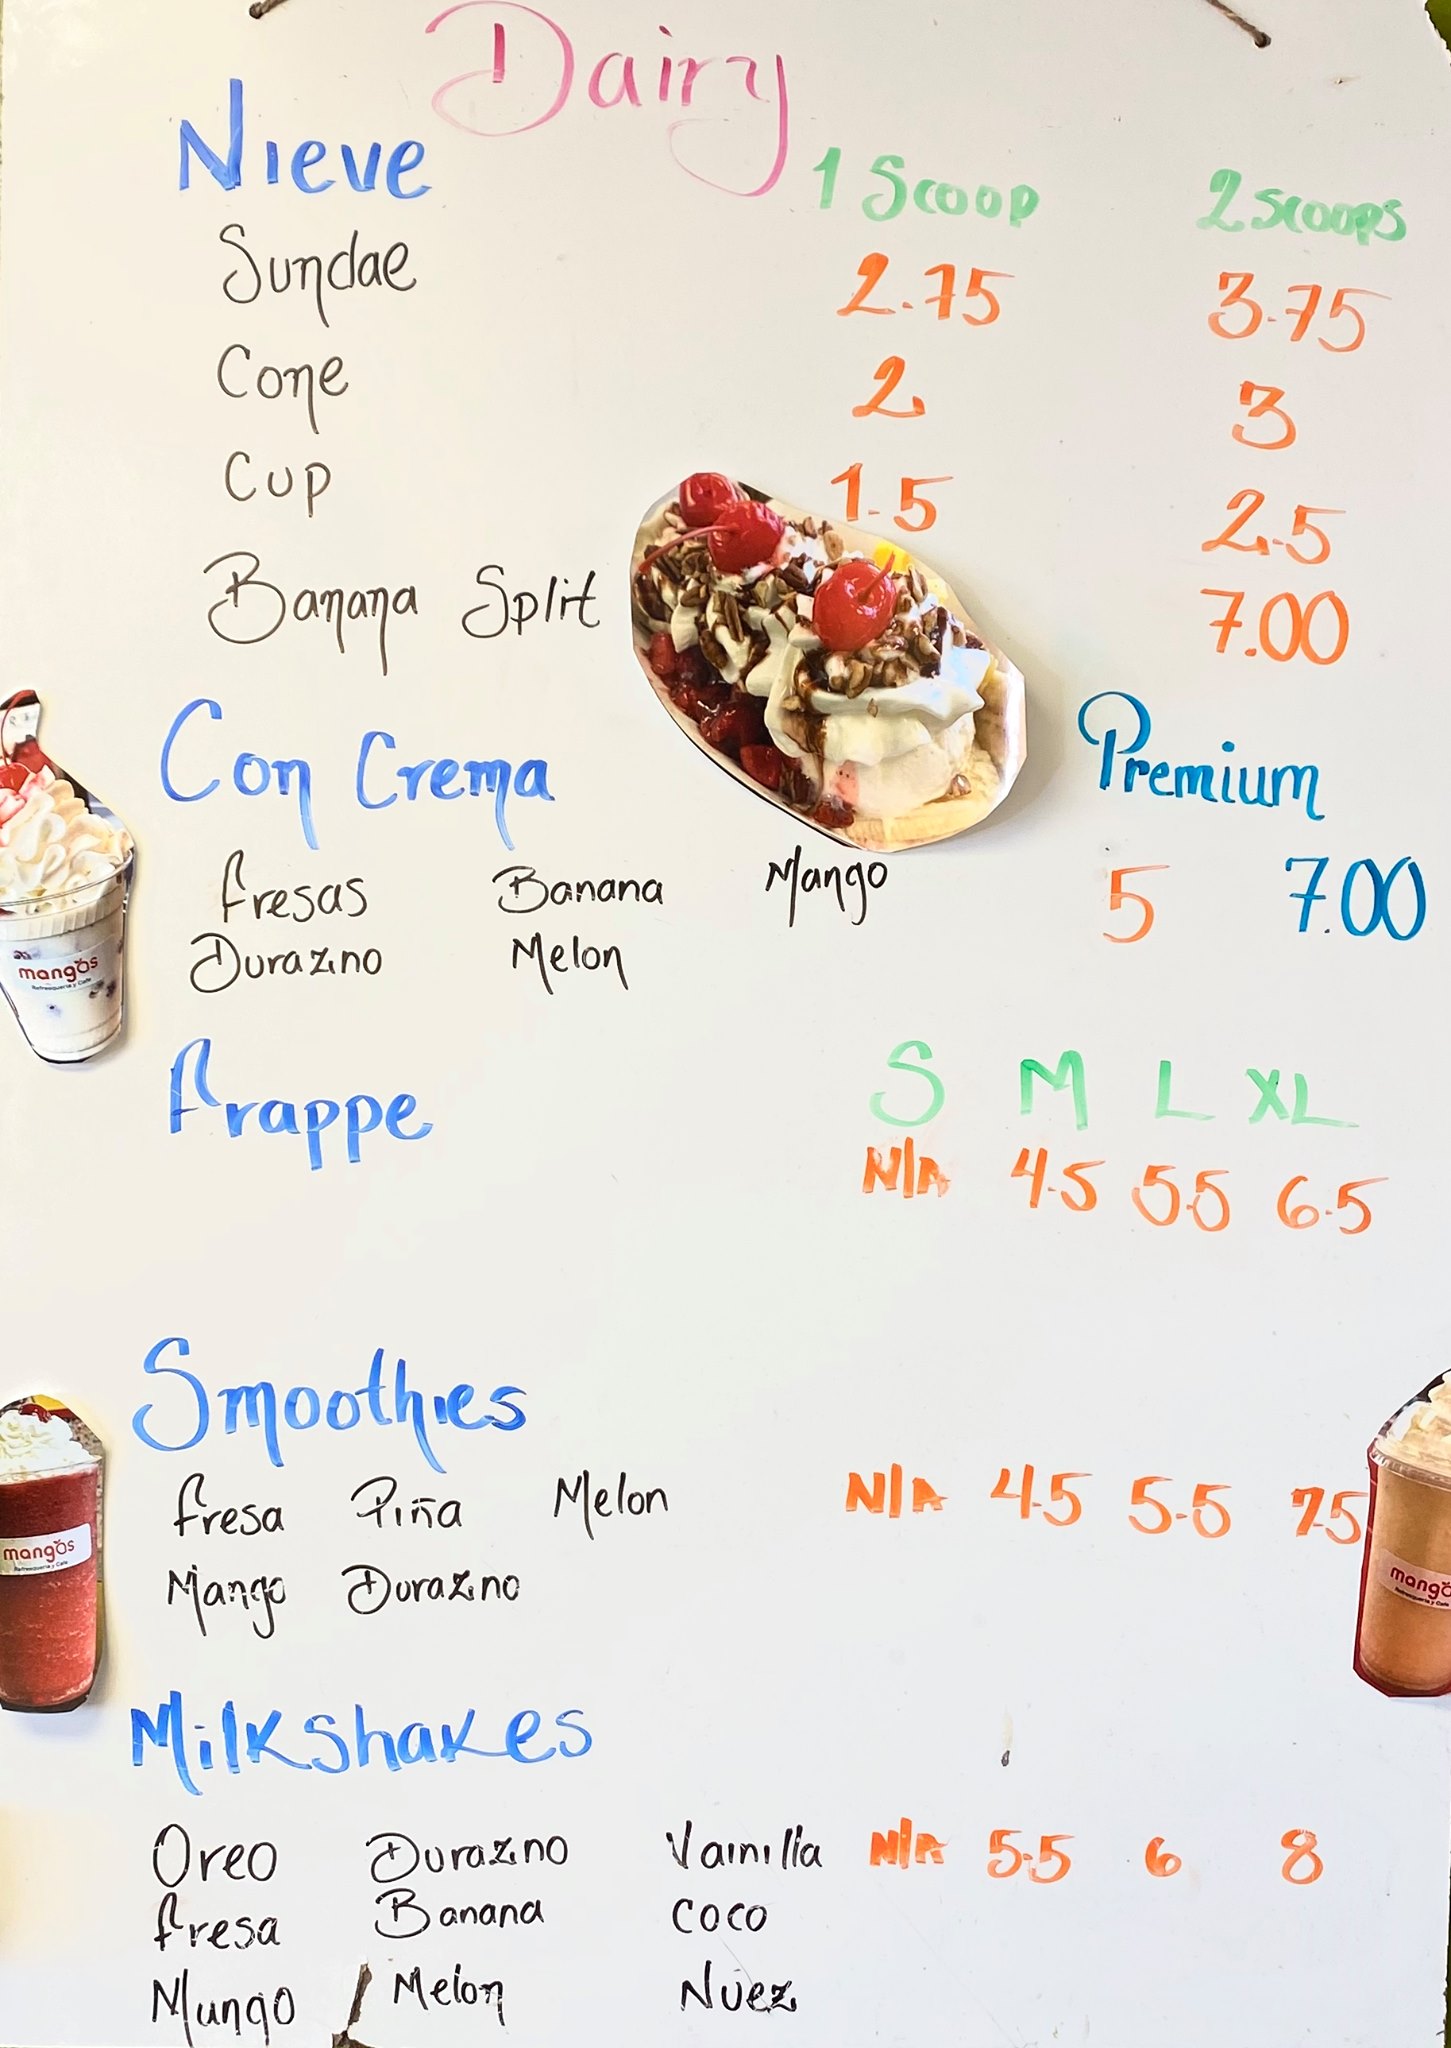 Dairy
Nieve 1 Scoop 2 scoops
Sundae 2.75 3.75
Cone 2 3
Cup 1.5 2.5
Banana Split 7.00
Con Crema Premium
Fresas Banana Mango 5 7.00
Durazno Melon
mangos
Refresquería y Cafe
Frappe S M L XL
N/A 4.5 5.5 6.5
Smoothies
Fresa Piña Melon N/A 4.5 5.5 7.5
mangos
Refresquería y Cafe
mango
Refresquería y Cafe
Mango Durazno
Milkshakes
Oreo Durazno Vainilla N/A 5.5 6 8
Fresa Banana Coco
Mango Melon Nuez